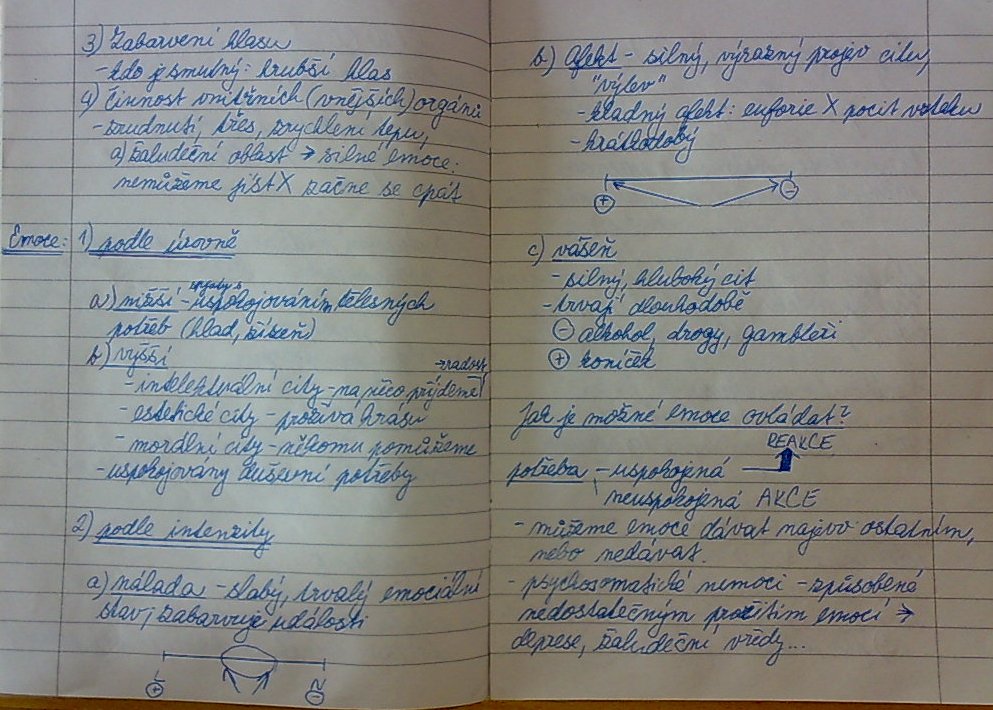 3) Zabarvení hlasu
- kdo je smutný: hrubší hlas
4) Činnost vnitřních (vnějších) orgánů
- zrudnutí, třes, zrychlení tepu,
a) žaludeční oblast → silné emoce:
nemůžeme jíst X začne se cpát
Emoce: 1) podle úrovně
a) nižší - spjaty s uspokojováním tělesných
potřeb (hlad, žízeň)
b) vyšší
- intelektuální city - na něco přijdeme - radost
- estetické city - prožívá krásu
- morální city - někomu pomůžeme
- uspokojovány duševní potřeby
2) podle intenzity
a) nálada - slabý, trvalý emociální
stav, zabarvuje události
+ -
b) Afekt - silný, výrazný projev citu,
"výlev"
- kladný afekt: euforie X pocit vzteku
- krátkodobý
+ -
c) vášeň
- silný, hluboký cit
- trvají dlouhodobě
- alkohol, drogy, gambleři
+ koníček
Jak je možné emoce ovládat?
REAKCE
potřeba - uspokojená
neuspokojená AKCE
- můžeme emoce dávat najevo ostatním,
nebo nedávat.
- psychosomatické nemoci - způsobené
nedostatečným prožitím emocí →
deprese, žaludeční vředy...